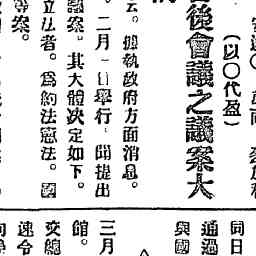 （以〇代盈）
後會議之議案大
云。據執政府方面消息。
。二月一日舉行。開提出
議案。其大體决定如下。
立法者。爲約法憲法。國
等案。
同日
通過
與國
三月
館。
交總
速令